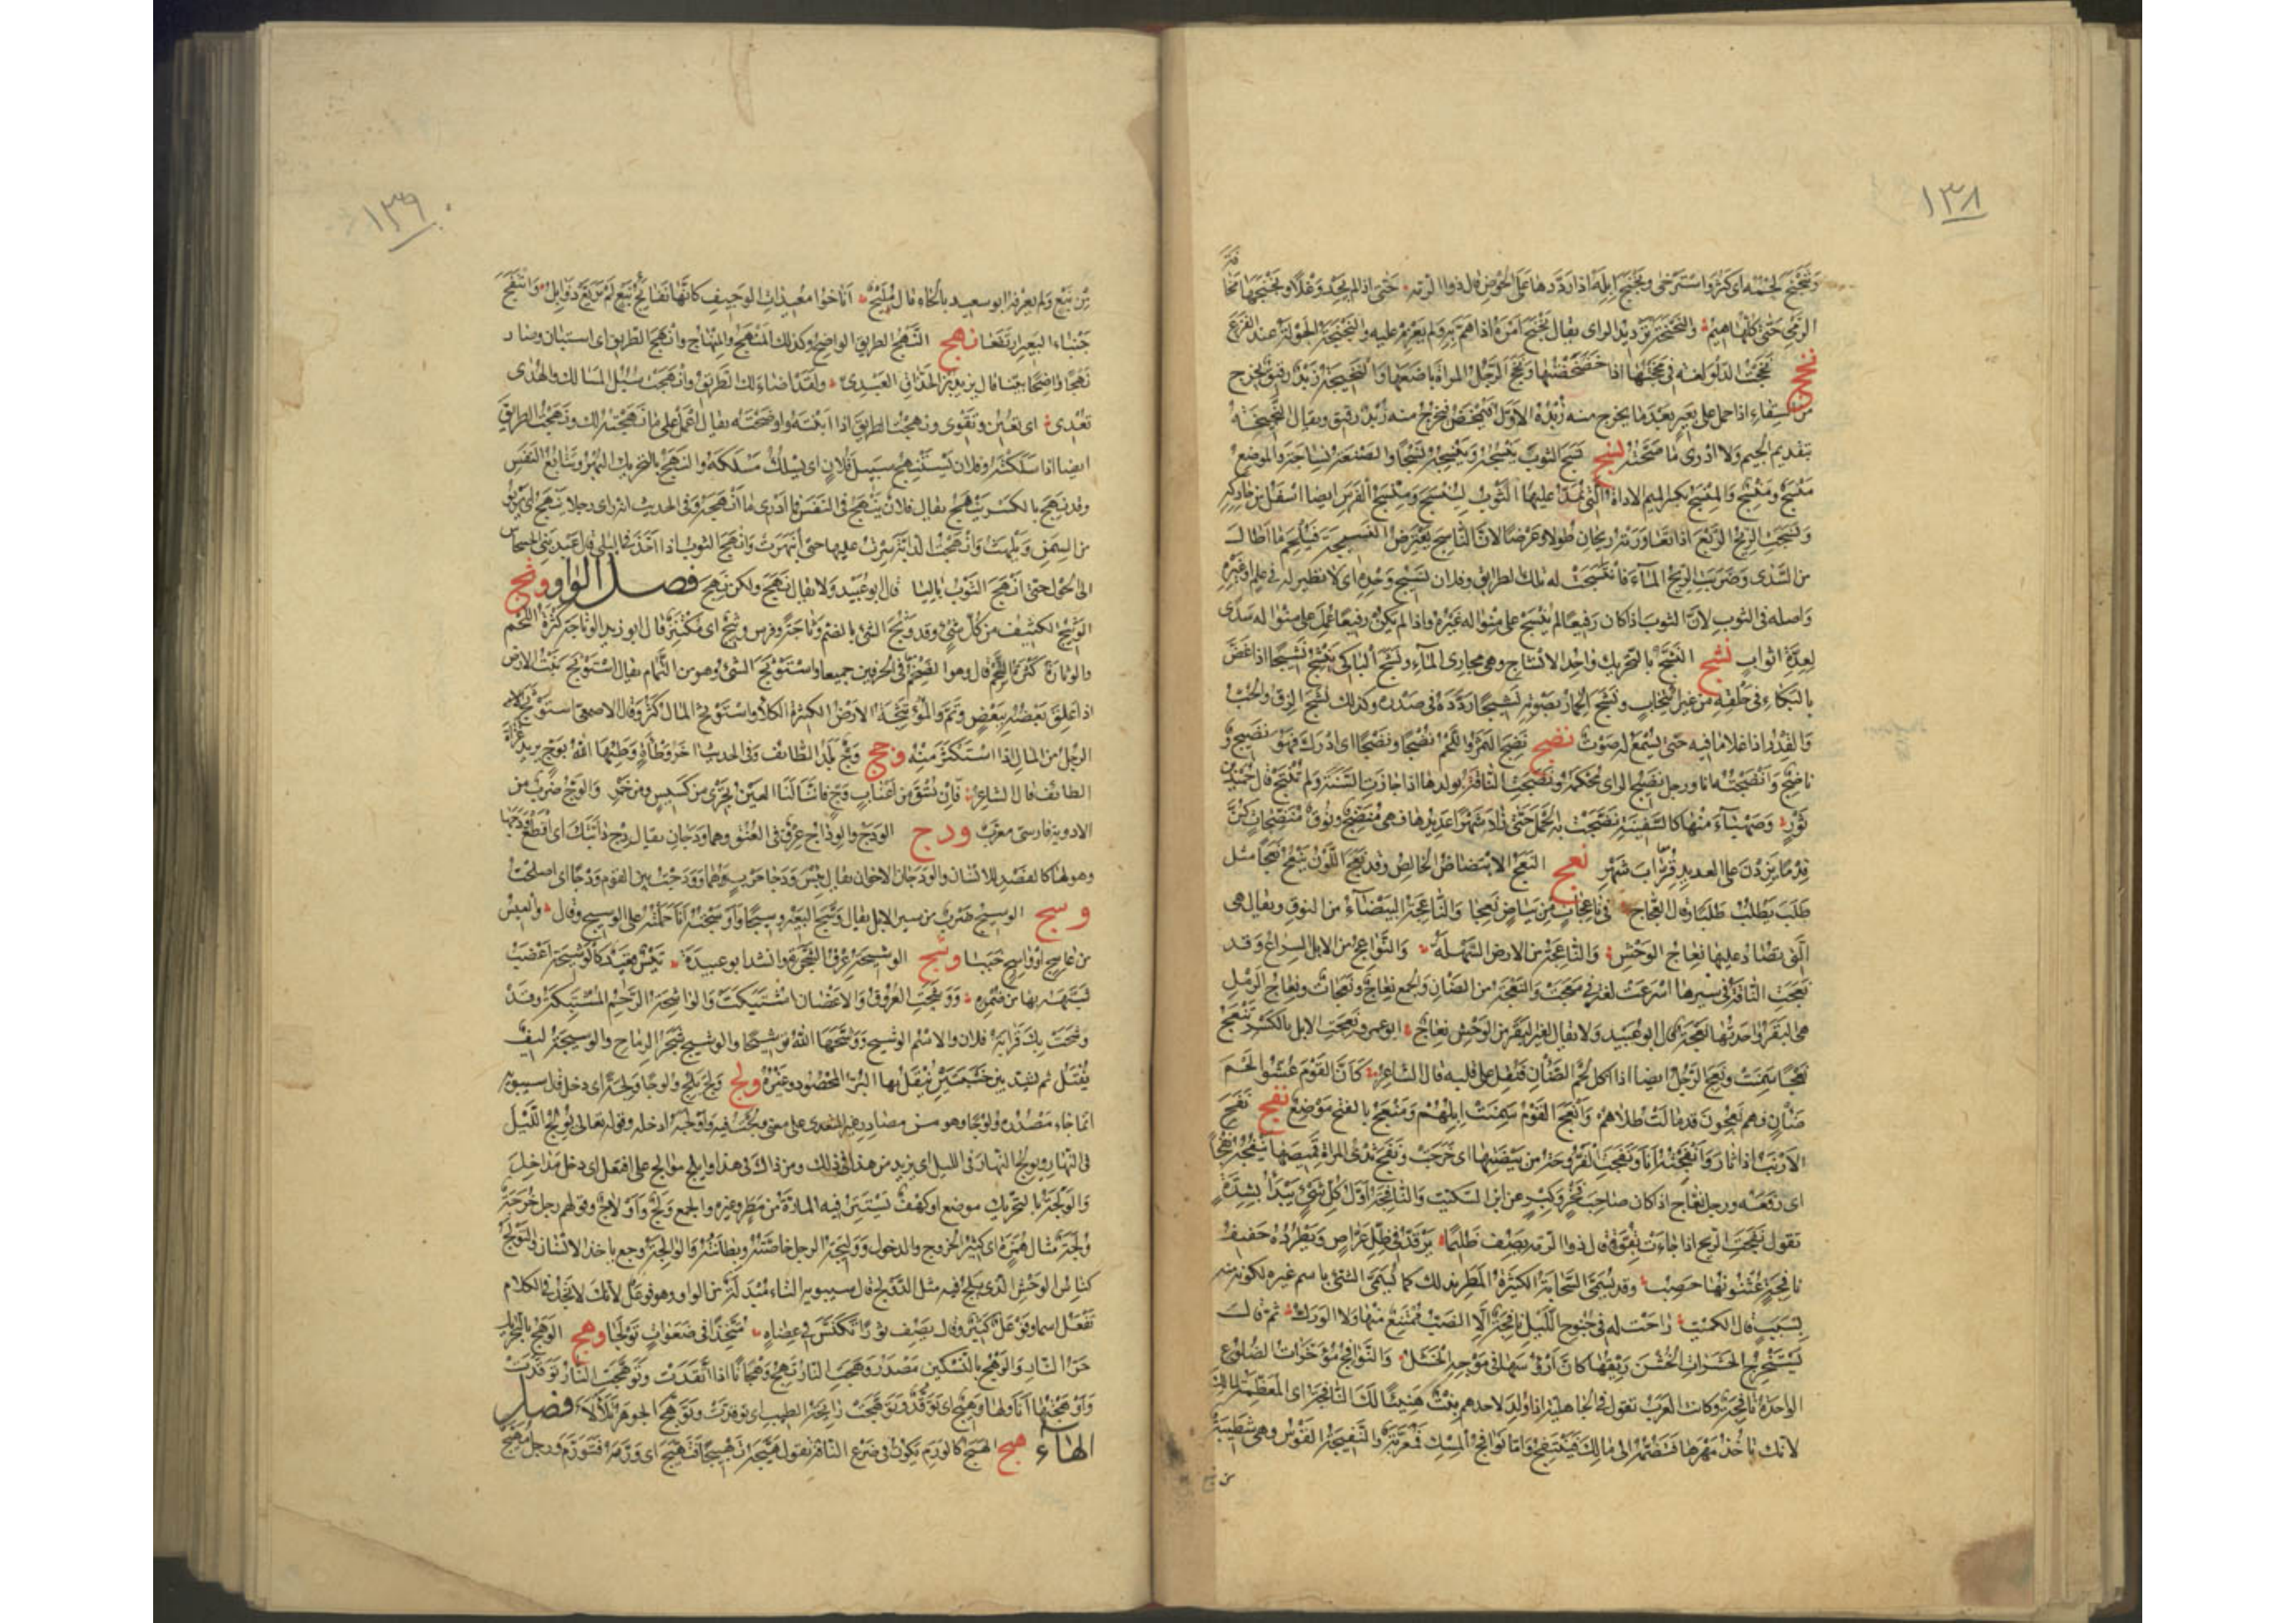 ١٣٨
الرمي حتى كأنها هيم والنجنجة ترديد الراى يقال نجنج امره اذا هم به ولم يعزم عليه والنجنجة الجولة عند الفزع
نخج نخجت الدلو لغة في مخجتها اذا خضخضتها ونخج الرجل المراة باضعها والنخيجة زبد رقيق يخرج
من السقاء اذا حمل على بعير بعد ما يخرج منه زبده الاول فيتمخض فيخرج منه زبد رقيق ويقال النجيخة
بتقديم الجيم ولا ادرى ما صحته نسج نسج الثوب ينسجه وينسجه نسجا والصنعة نساجة والموضع
منسج ومنسج والمنسج بكسر الميم الاداة التي يمد عليها الثوب لينسج ومنسج الفرس ايضا اسفل من حاركه
ونسجت الريح الربع اذا تعاورته ريحان طولا وعرضا لان الناسج يعترض النسيجة فيلحم ما اطال
من السدى وضربت الريح الماء فانتسجت له تلك الطرايق وفلان نسيج وحده اى لا نظير له في علم او غيره
واصله في الثوب لان الثوب اذا كان رفيعا لم ينسج على منواله غيره واذا لم يكن رفيعا عمل على منواله سدى
لعدة اثواب نشج النشج بالتحريك واحد الانشاج وهي مجارى الماء ونشج الباكى ينشج نشيجا اذا غص
بالبكاء في حلقه من غير انتحاب ونشج الحمار بصوته نشيجا ردده في صدره وكذلك نشج الزق والحب
والقدر اذا غلا ما فيه حتى يسمع له صوت نضج نضج الثمر واللحم نضجا ونضجا اى ادرك فهو نضيج و
ناضج وانضجته انا ورجل نضيج الراى محكمه ونضجت الناقة بولدها اذا جازت السنة ولم تنتج قال حميد بن
ثور وصهباء منها كالسفينة نضجت به الحمل حتى زاد شهرا عديدها فهي منضج ونوق منضجات
نعج النعج الابيضاض الخالص وقد نعج اللون ينعج نعجا مثل
طلب يطلب طلبا قال العجاج في ناعجات من بياض نعجا والناعجة البيضاء من النوق ويقال هي
التي يصاد عليها نعاج الوحش والناعجة من الارض السهلة والنواعج من الابل السراع وقد
نعجت الناقة في سيرها اسرعت لغة في معجت والنعجة من الضان والجمع نعاج ونعجات ونعاج الرمل
هى البقر واحدتها نعجة قال ابو عبيد ولا يقال لغير البقر من الوحش نعاج ابو عمرو نعجت الابل بالكسر تنعج
نعجا سمنت ونعج الرجل ايضا اذا اكل لحم الضان فثقل على قلبه قال الشاعر كان القوم عشوا لحم
ضان فهم نعجون قد مالت طلاهم وانعج القوم سمنت ابلهم ومنعج بالفتح موضع نفج نفجت
الارنب اذا ثار وانفجته انا ونفجت الفروجة من بيضتها اى خرجت ونفج ثدى المراة قميصها ينفجه نفجا
اى رفعه ورجل نفاج اذا كان صاحب فخر وكبر عن ابن السكيت والنافجة اول كل شيء يبدأ بشدة
تقول نفجت الريح اذا جاءت بقوة قال ذو الرمه يصف ظليما يرقد في ظل عراص ويطرده حفيف
نافجة عثنونها حصب وقد تسمى السحابة الكثيرة المطر بذلك كما يسمى الشئ باسم غيره لكونه منه
بسبب قال الكميت راحت له في جنوح الليل نافجة لا الضب ممتنع منها ولا الورل ثم قال
يستخرج الحشرات الخشن ريقها كان ارؤسها في موجه الخشل والنوافج مؤخرات الضلوع
الواحدة نافجة وكانت العرب تقول في الجاهلية اذا ولد لاحدهم بنت هنيئا لك النافجة اى المعظمة لمالك
لانك تاخذ مهرها فتضمه الى مالك فينتفج واما نوافج المسك فمعربة والنفيجة القوس وهي شطيبة
من نبع
١٣٩
من نبع ولم يعرفه ابو سعيد بالحاء قال مليح اناخوا معيدات الوجيف كانها نفائج نبع لم تريع ذوابل وانتفج
جنباء البعير ارتفعا نهج النهج الطريق الواضح وكذلك المنهج والمنهاج وانهج الطريق اى استبان وصار
نهجا واضحا بينا قال يزيد بن الحذاق العبدى ولقد اضاء لك الطريق وانهجت سبل المسالك والهدى
تعدى اى تعين وتقوى ونهجت الطريق اذا ابنته واوضحته يقال اعمل على ما نهجته لك ونهجت الطريق
ايضا اذا سلكته وفلان يستنهج سبيل فلان اى يسلك مسلكه والنهج بالتحريك البهر وتتابع النفس
وقد نهج بالكسر ينهج يقال فلان ينهج في النفس فما ادرى ما انهجه وفي الحديث انه راى رجلا ينهج اى يربو
من السمن ويلهث وانهجت الدابة سرت عليها حتى انبهرت وانهج الثوب اذا اخذ في البلى قال عبد بنى الحسحاس
الى الحول حتى انهج الثوب باليا قال ابو عبيد ولا يقال نهج ولكن نهج فصل الواو وثج
الوثيج الكثيف من كل شئ وقد وثج الشئ بالضم وثاجة وفرس وثيج اى مكتنز قال ابو زيد الوثاجة كثرة اللحم
والوثارة كثرة الشحم قال وهو الضخم في الحرفين جميعا واستوثج الشئ وهو من التمام يقال استوثج نبت الارض
اذا علق بعضه ببعض وتم والمؤتثجة الارض الكثيرة الكلأ واستوثج المال كثر وقال الاصمعى استوثج
الرجل من المال اذا استكثر منه وجج وج بلد الطائف وفي الحديث اخر وطأة وطئها الله بوج يريد غزاة
الطائف قال الشاعر فان تسق من اعناب وج فاننا لنا العين تجرى من كسيس ومن خمر والوج ضرب من
الادوية فارسى معرب ودج الودج والوداج عرق في العنق وهما ودجان يقال دج دابتك اى اقطع ودجها
وهو لها كالفصد للانسان والودجان الاخوان يقال بئس ودجا حرب هما وودجت بين القوم ودجا اى اصلحت
وسج الوسيج ضرب من سير الابل يقال وسج البعير وسيجا واوسجته انا حملته على الوسيج وقال والعيس
من عاسج او واسج خببا وشج الوشيجة عرق الشجرة وانشد ابو عبيدة
ووشجت العروق والاغصان اشتبكت والواشجة الرحم المشتبكة وقد
وشجت بك قرابة فلان والاسم الوشيج ووشجها الله توشيجا والوشيج شجر الرماح والوشيجة ليف
يفتل ثم يشد بين خشبتين ينقل بها البر المحصود وغيره ولج ولج يلج ولوجا ولجة اى دخل قال سيبويه
انما جاء مصدره ولوجا وهو من مصادر غير المتعدى على معنى ولجت فيه واولجه ادخله وقوله تعالى يولج الليل
في النهار ويولج النهار في الليل اى يزيد من هذا في ذلك ومن ذاك في هذا واتلج موالج على افتعل اى دخل مداخل
والولجة بالتحريك موضع او كهف تستتر فيه المارة من مطر وغيره والجمع ولج واولاج وقولهم رجل خرجة
ولجة مثال همزة اى كثير الخروج والدخول ووليجة الرجل خاصته وبطانته والوالجة وجع ياخذ الانسان والتولج
كناس الوحش الذى يلج فيه مثل الدولج قال سيبويه التاء مبدلة من الواو وهو فوعل لانك لا تجد في الكلام
تفعل اسما وفوعل كثير وقال يصف ثورا تكنس في عضاه متخذا في ضعوات تولجا وهج الوهج بالتحريك
حر النار والوهج بالتسكين مصدر وهجت النار تهج وهجانا اذا اتقدت وتوهجت النار توقدت
واوهجتها انا ولها وهيج اى توقد وتوهجت رائحة الطيب اى توقدت وتوهج الجوهر تلألأ فصل
الهاء هبج الهبج كالورم يكون في ضرع الناقة تقول هبجه تهبيجا فتهبج اى ورمه فتورم ورجل مهبج